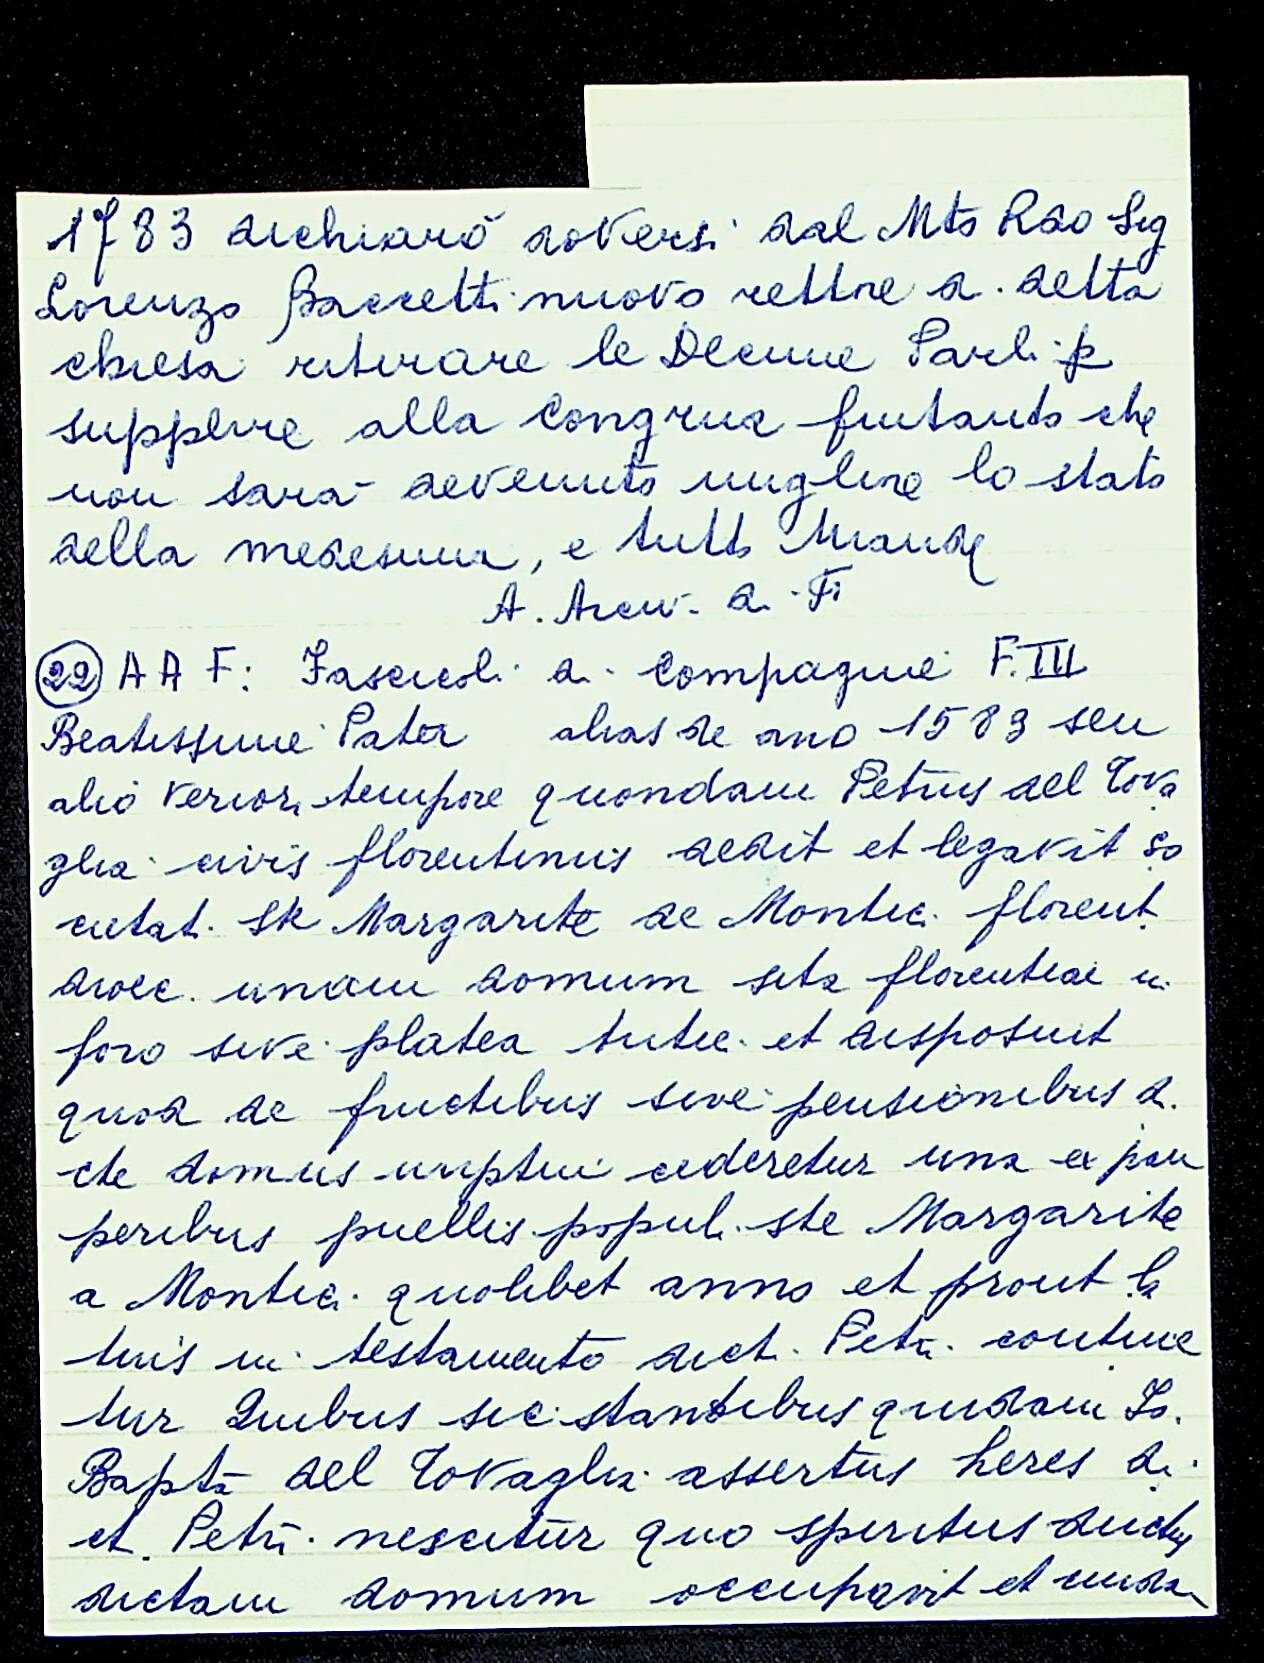 1783 dichiarò doversi dal Mto Rdo Sig
Lorenzo Baccetti nuovo rettore di detta
chiesa ritirare le Decime Parli p
supplire alla Congrua fintanto che
non sarà devenuto migliore lo stato
della medesima, e tutto Mand
A. Arciv. di Fi
22 AAF: Fascicoli di Compagnie F. III
Beatissime Pater alias de ano 1583 seu
alio veriori tempore quondam Petrus del Tova
glia civis florentinus dedit et legavit so
cietat. Ste Margarite de Montici florent.
dioec. unam domum sita florentiae in
foro sive platea et disposuit
quod de fructibus sive pensionibus di
cte domus nuptui cederetur una ex pau
peribus puellis populi ste Margarite
a Montici quolibet anno et prout la
tius in testamento dict. Petri contine
tur Quibus sic stantibus quidam Jo.
Bapta del Tovaglia assertus heres di
ct. Petri nescitur quo spiritus ductus
dictam domum occupavit et